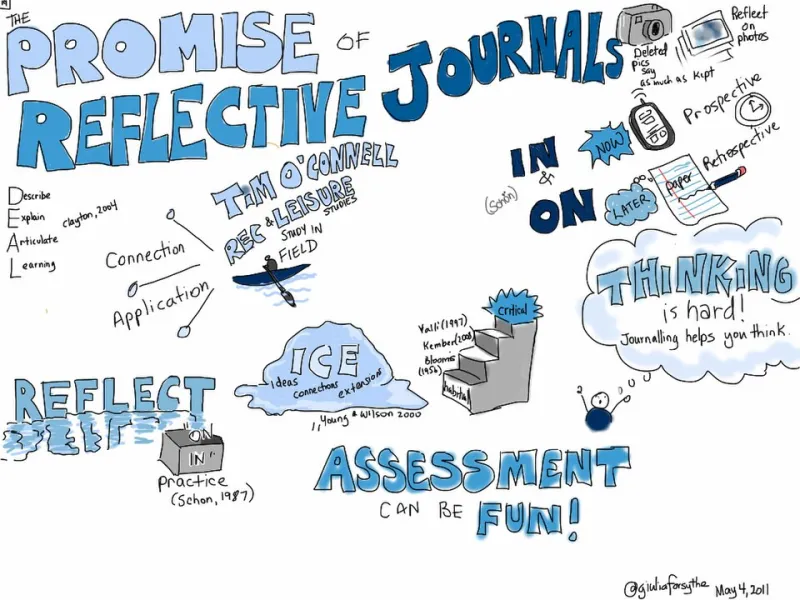 THE
PROMISE OF
REFLECTIVE
JOURNALS
Deleted
pics
say
as much as kept
Reflect
on
photos
TIM O'CONNELL
REC & LEISURE
STUDIES
STUDY IN
FIELD
Describe
Explain
Articulate
Learning
Clayton, 2004
Connection
Application
IN
&
ON
(Schön)
NOW
Prospective
LATER
paper
Retrospective
THINKING
is hard!
Journalling helps you think.
ICE
Ideas
connections
extensions
Young & Wilson 2000
Valli (1997)
Kember (2008)
Blooms
(1956)
critical
REFLECT
ON
"IN"
practice
(Schon, 1987)
ASSESSMENT
CAN BE
FUN!
@giuliaforsythe May 4, 2011